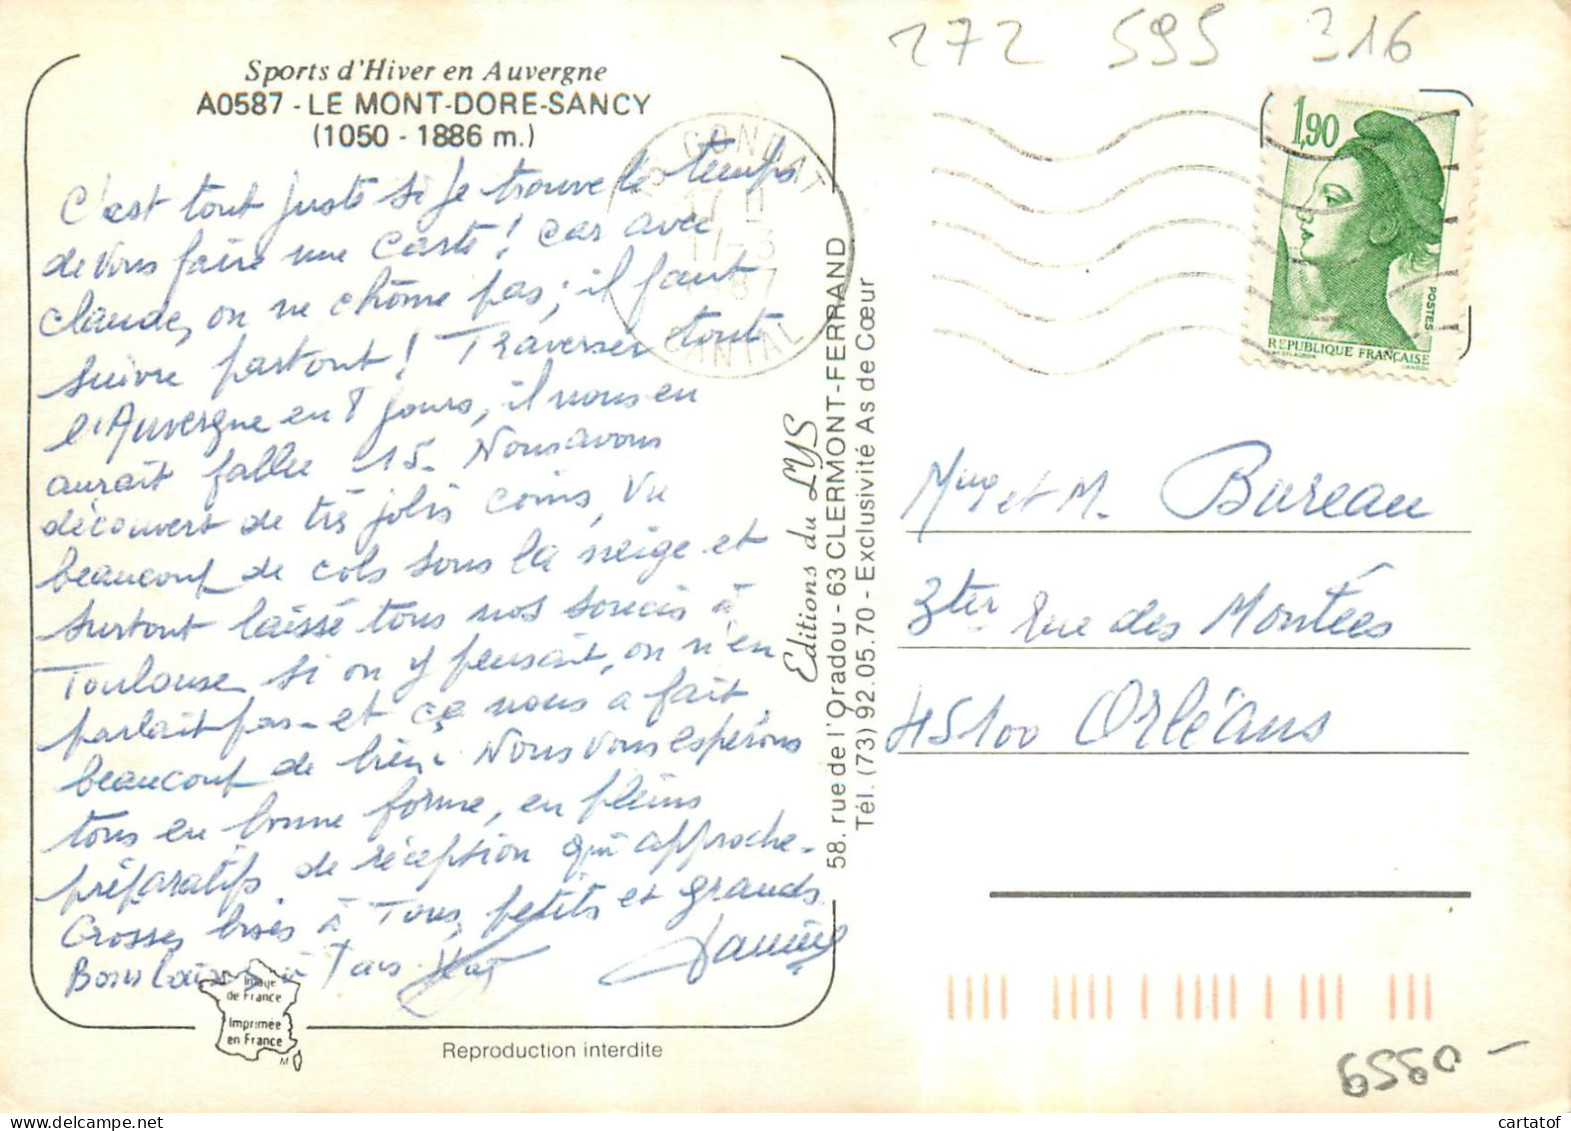 272 595 316
Sports d'Hiver en Auvergne
A0587 - LE MONT-DORE-SANCY
(1050 - 1886 m.)
C'est tout juste si je trouve le temps
de vous faire une carte ! car avec
Claude, on ne chôme pas ; il faut
suivre partout ! Traverser tout
l'Auvergne en 8 jours, il nous en
aurait fallu 15. Nous avons
découvert de très jolis coins, vu
beaucoup de cols sous la neige et
surtout laissé tous nos soucis à
Toulouse, si on y pensait, on n'en
parlait pas - et ça nous a fait
beaucoup de bien. Nous vous espérons
tous en bonne forme, en pleins
préparatifs de réception qui approche.
Grosses bises à Tous, petits et grands
à Tous
Image
de France
Imprimée
en France
M
Reproduction interdite
CONDAT
17 H
17-3
87
CANTAL
Editions du LYS
58, rue de l'Oradou - 63 CLERMONT-FERRAND
Tél. (73) 92.05.70 - Exclusivité As de Cœur
1,90
POSTES
REPUBLIQUE FRANÇAISE
Mme et M. Bureau
3ter rue des Montées
45100 Orléans
6550 -
cartatof